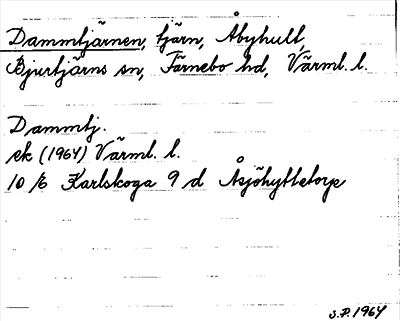 Dammtjärnen, tjärn, Åbyhult,
Bjurtjärns sn, Färnebo hd, Värml. l.
Dammtj.
ek (1964) Värml. l.
10 /6 Karlskoga 9 d Åsjöhyttetorp
S.P. 1964